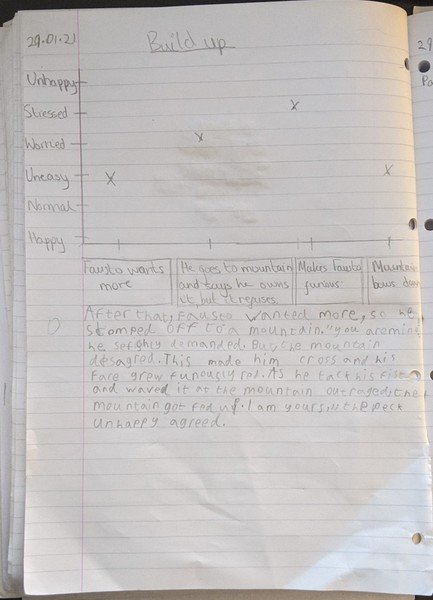 29.01.21
Build up
29
Po
Unhappy
Stressed
Worried
Uneasy
Normal
Happy
Fausto wants
more
He goes to mountain
and says he owns
it, but it refuses.
Makes Fausto
furious
Mountain
bows down
After that, Fausto wanted more, so he
stomped off to a mountain. "you are mine
he demanded. But, the mountain
desagred. This made him cross and his
face grew furiously red. As he his fist
and waved it at the mountain outraged, the
mountain got fed up. I am yours, the peck
unhappy agreed.